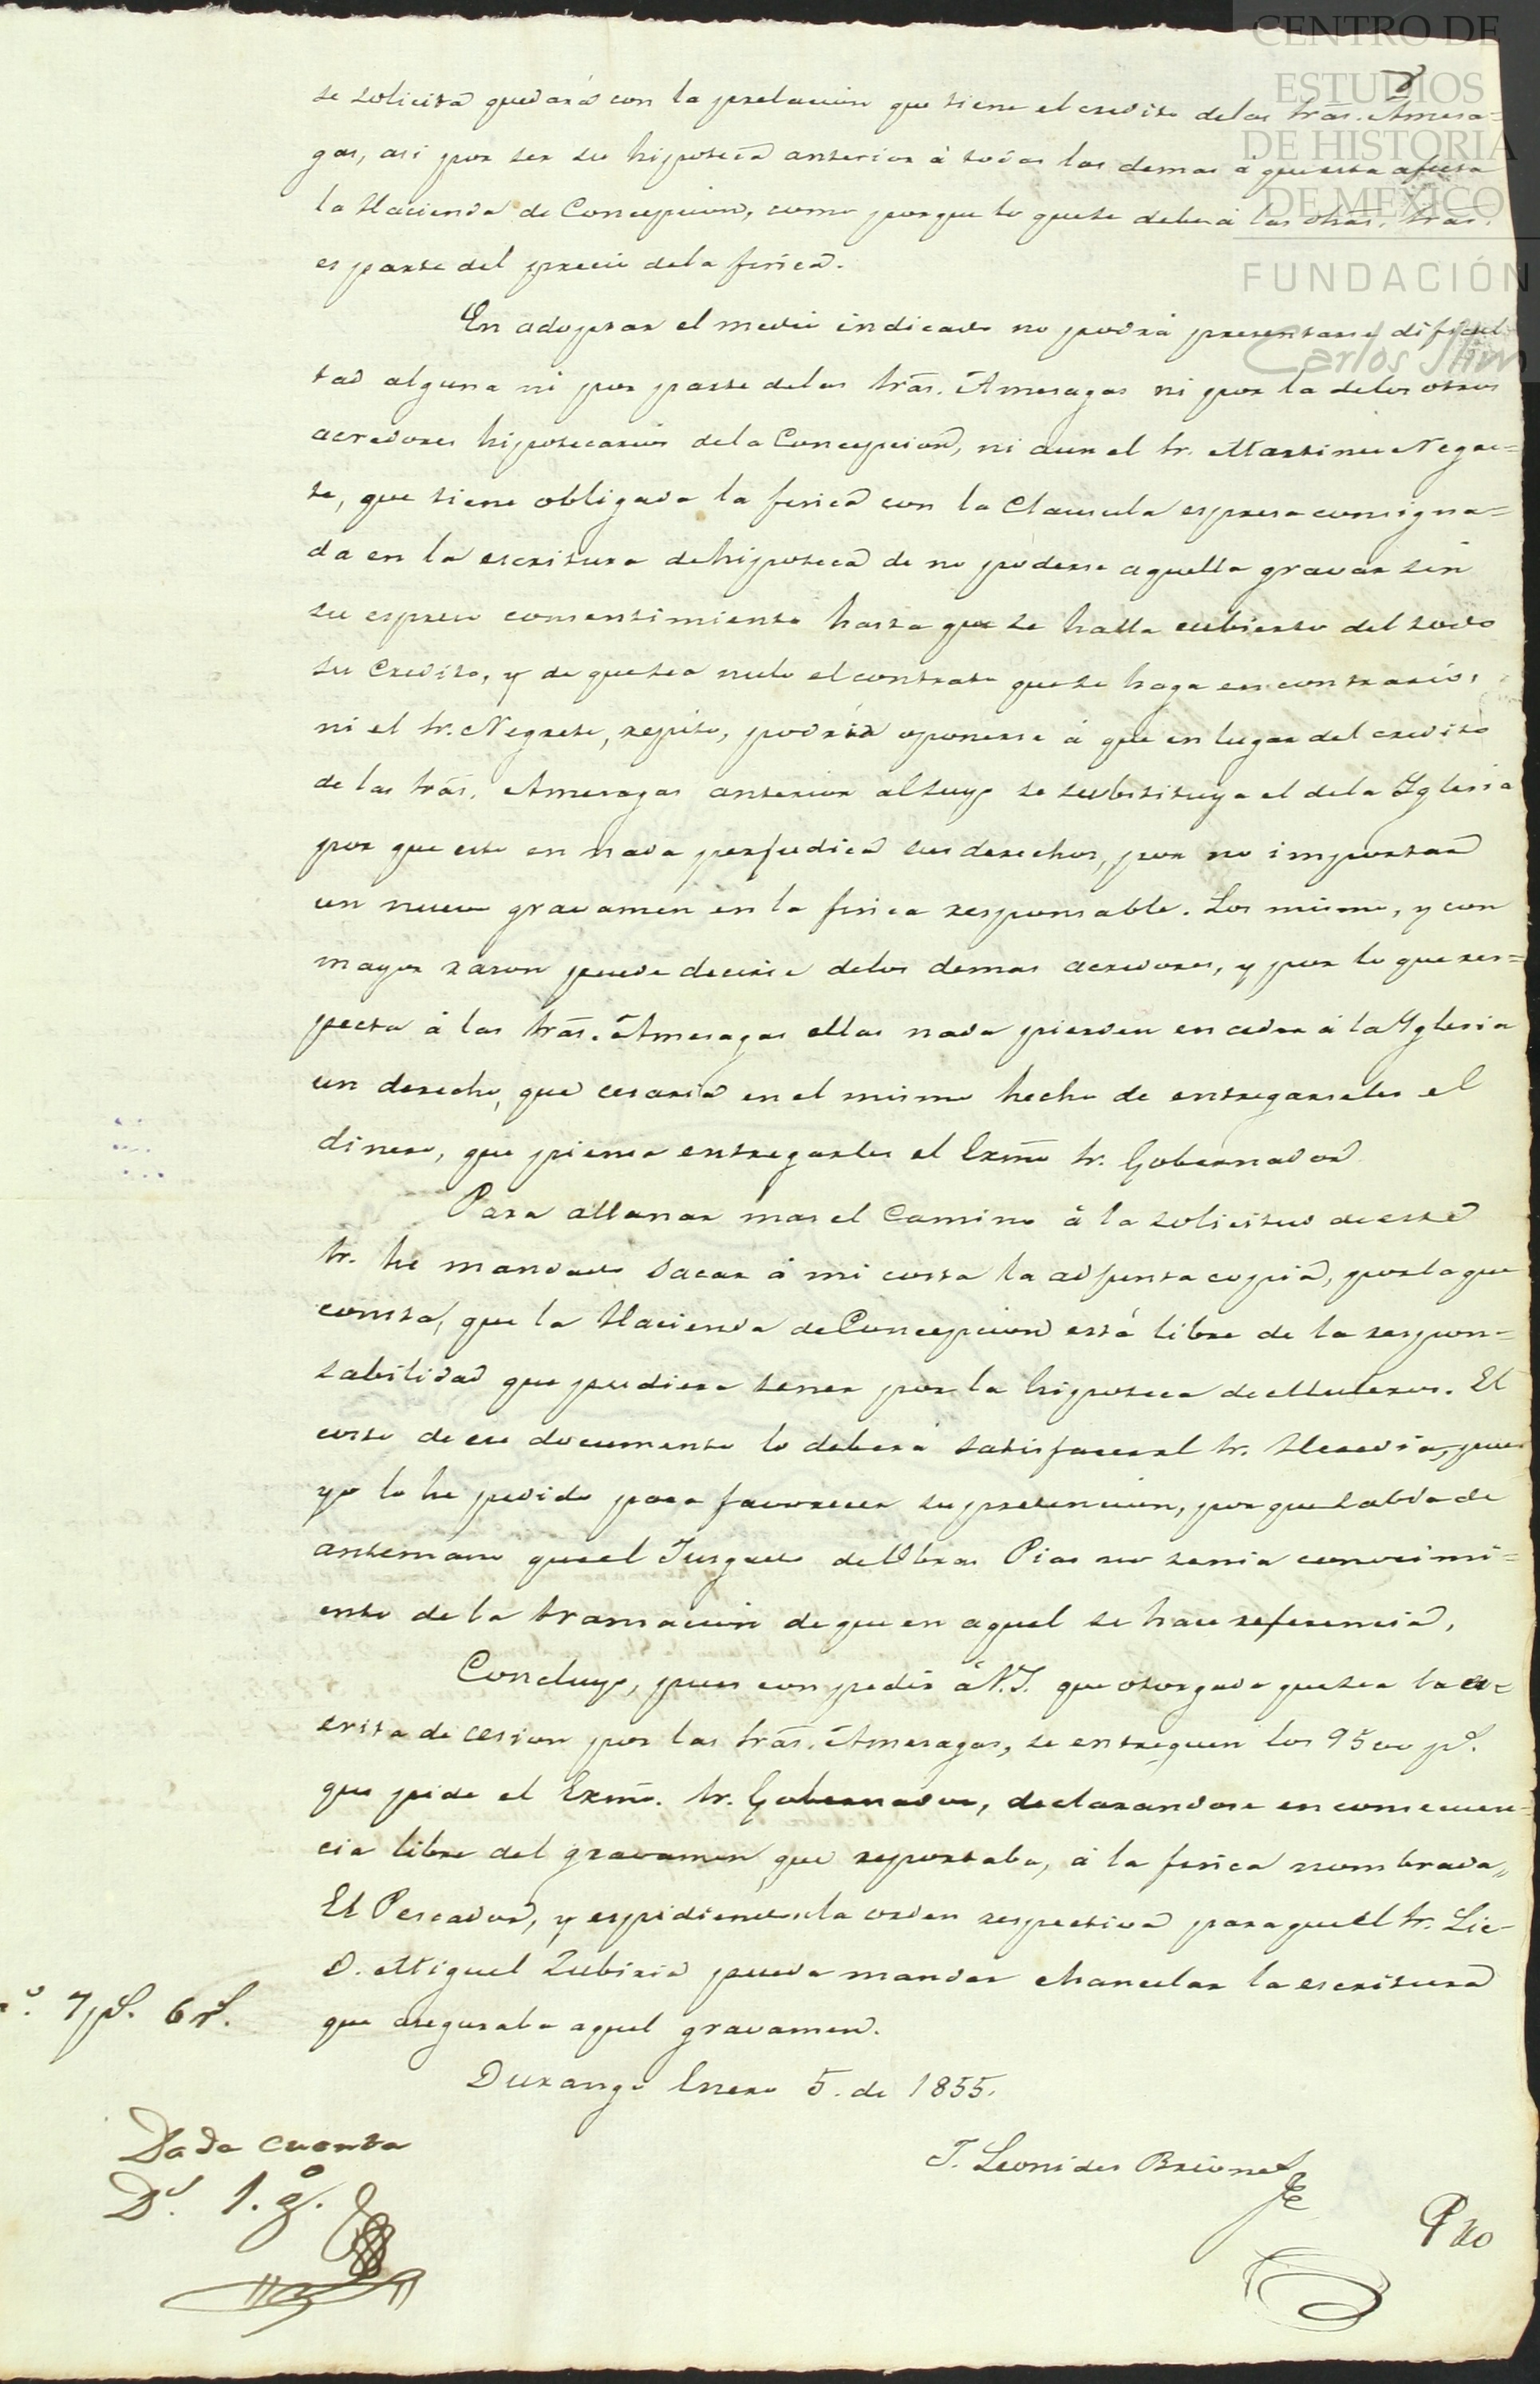 CENTRO DE
ESTUDIOS
DE HISTORIA
DE MEXICO
FUNDACIÓN
Carlos Slim
se solicita quedará con la prelacion que tiene el credito de las Srās. Amesa=
gas, asi por ser su hipoteca anterior á todas las demas á que esta afecta
la Hacienda de Concepcion, como porque lo que se debe á las dhās. Srās.
es parte del precio dela finca.
En adoptar el medio indicado no podrá presentarse dificul
tad alguna ni por parte delas Srās. Amesagas ni por la delos otros
acredores hipotecarios dela Concepcion, ni aun el Sr. Martinez Negre=
te, que tiene obligada la finca con la Clausula espresa consigna=
da en la escritura de hipoteca de no poderse aquella gravar sin
su espreso consentimiento hasta que se halla cubierto del todo
su Credito, y de que sea nulo el contrato que se haga en contrario,
ni el Sr. Negrete, repito, podria oponerse á que en lugar del credito
de las Srās. Amesagas anterior al suyo se substituya el dela Yglesia
por que esto en nada perjudica sus derechos, por no importar
un nuevo gravamen en la finca responsable. Los mismo, y con
mayor rason puede decirse delos demas acredores, y por lo que res=
pecta á las Srās. Amesagas ellas nada pierden en ceder á la Yglesia
un derecho, que cesaria en el mismo hecho de entregarseles el
dinero, que piensa entregarles el Exmō Sr. Gobernador
Para allanar mas el Camino á la solicitud de este
Sr. he mandado sacar á mi costa la adjunta copia, por la que
consta, que la Hacienda de Concepcion está libre de la respon=
sabilidad que pudiera tener por la hipoteca de Muleros. El
costo de ese documento lo deberá satisfacer el Sr. Heredia, pues
yo lo he pedido para favorecer su pretencion, por que sabia de
antemano que el Jusgado de Obras Pias no tenia conocimi=
ento de la transacion de que en aquel se hace referencia.
Concluyo, pues con pedir á V.S. que otorgada que sea la es=
crita de cesion por las Srās. Amesagas, se entreguen los 9500 ps.
que pide el Exmō. Sr. Gobernador, declarandose en consecuen=
cia libre del gravamen que reportaba, á la finca nombrada"
El Pescador, y espidiendo la orden respectiva para que el Sr. Lic
D. Miguel Zubiria pueda mandar chancelar la escritura
que aseguraba aquel gravamen.
7ps. 6rs.
Durango Enero 5. de 1855.
Dada cuenta
J. Leonides Briones